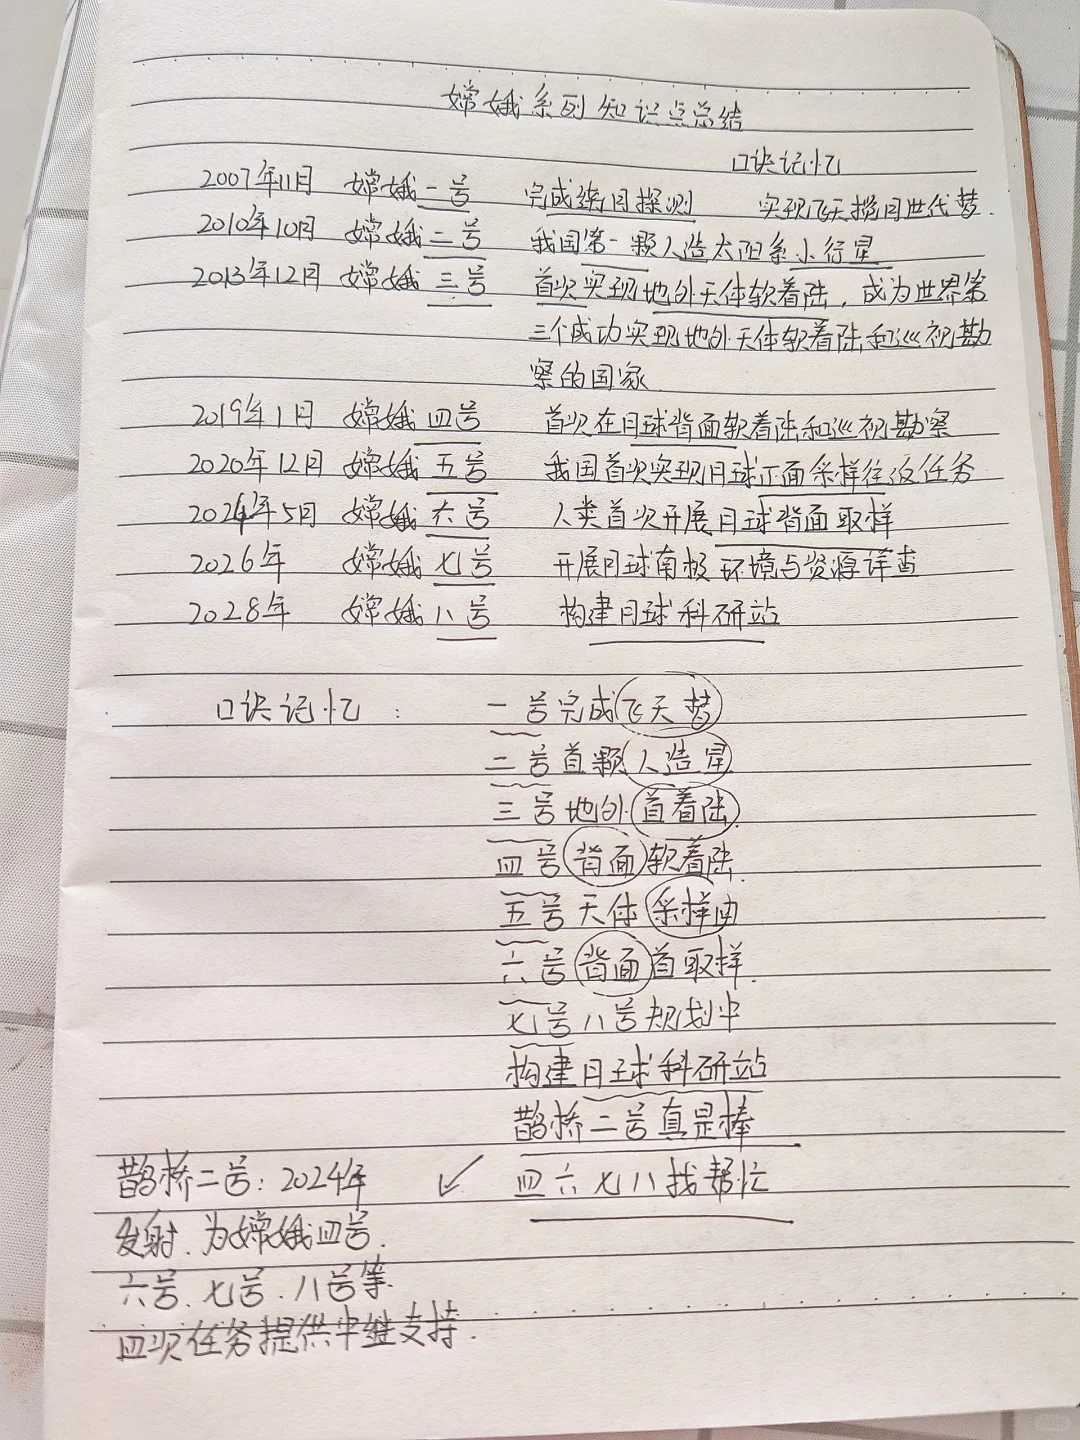 嫦娥系列知识点总结
口诀记忆
2007年11月 嫦娥一号 完成绕月探测 实现飞天揽月世代梦.
2010年10月 嫦娥二号 我国第一颗人造太阳系小行星
2013年12月 嫦娥三号 首次实现地外天体软着陆,成为世界第
三个成功实现地外天体软着陆和巡视勘
察的国家
2019年1月 嫦娥四号 首次在月球背面软着陆和巡视勘察
2020年12月 嫦娥五号 我国首次实现月球正面采样往返任务
2024年5月 嫦娥六号 人类首次开展月球背面取样
2026年 嫦娥七号 开展月球南极环境与资源详查
2028年 嫦娥八号 构建月球科研站
口诀记忆: 一号完成飞天梦
二号首颗人造星
三号地外首着陆.
四号背面软着陆.
五号天体采样由
六号背面首取样.
七号八号规划中
构建月球科研站
鹊桥二号真是棒
四六七八找帮忙
鹊桥二号:2024年
发射.为嫦娥四号.
六号.七号.八号等.
四次任务提供中继支持.